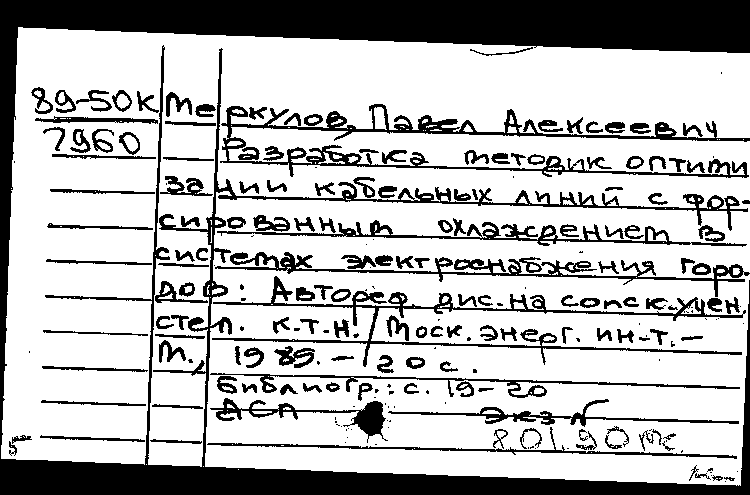 89-50к Меркулов, Павел Алексеевич
7960 Разработка методик оптими
зации кабельных линий с фор-
сированным охлаждением в
системах электроснабжения горо-
дов: Автореф. дис. на соиск. учен.
степ. к.т.н. / Моск. энерг. ин-т. -
М., 1989. - 20 с.
Библиогр.: с. 19-20
ДСП Экз №
8.01.90
5